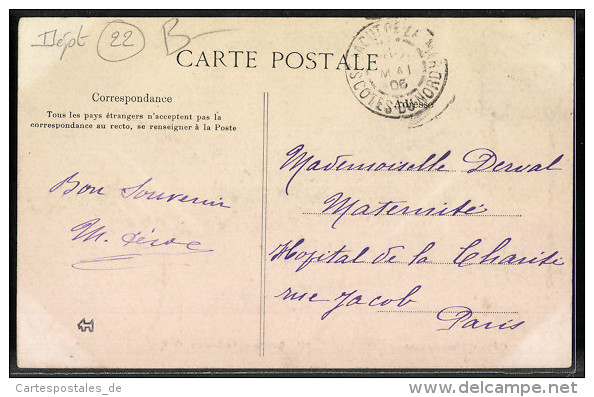 Dépt 22 B-
CARTE POSTALE
MAI
06
CÔTES-DU-NORD
Correspondance
Tous les pays étrangers n'acceptent pas la
correspondance au recto, se renseigner à la Poste
Adresse
Bon Souvenir
M.
Mademoiselle Derval
Maternité
Hopital de la Charité
rue Jacob
Paris
Cartespostales_de
www.delcampe.net